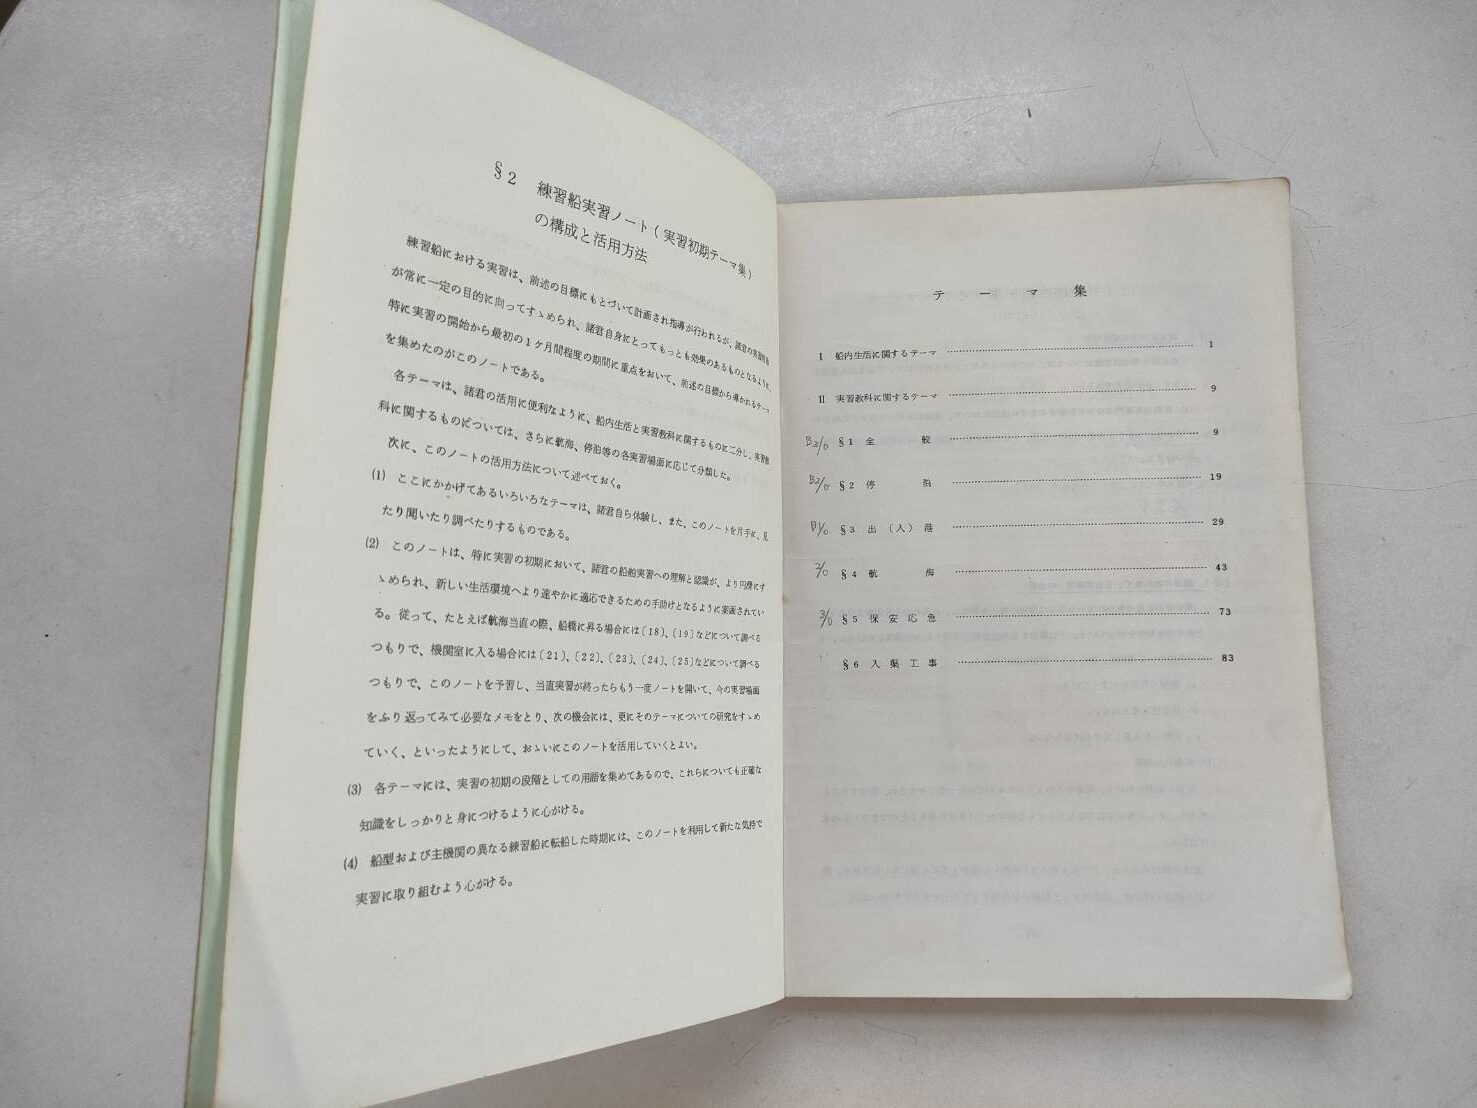 §2 練習船実習ノート(実習初期テーマ集)
の構成と活用方法
練習船における実習は、前述の目標にもとづいて計画され指導が行われるが、諸君の実習
が常に一定の目的に向ってすゝめられ、諸君自身にとってもっとも効果のあるものとなるように、
特に実習の開始から最初の1ケ月間程度の期間に重点をおいて、前述の目標から導かれるテーマ
を集めたのがこのノートである。
各テーマは、諸君の活用に便利なように、船内生活と実習教科に関するものに二分し、実習教
科に関するものについては、さらに航海、停泊等の各実習場面に応じて分類した。
次に、このノートの活用方法について述べておく。
(1) ここにかかげてあるいろいろなテーマは、諸君自ら体験し、また、このノートを片手に、見
たり聞いたり調べたりするものである。
(2) このノートは、特に実習の初期において、諸君の船舶実習への理解と認識が、より円滑にす
ゝめられ、新しい生活環境へより速やかに適応できるための手助けとなるように案画されてい
る。従って、たとえば航海当直の際、船橋に昇る場合には〔18〕、〔19〕などについて調べる
つもりで、機関室に入る場合には〔21〕、〔22〕、〔23〕、〔24〕、〔25〕などについて調べる
つもりで、このノートを予習し、当直実習が終ったらもう一度ノートを開いて、今の実習場面
をふり返ってみて必要なメモをとり、次の機会には、更にそのテーマについての研究をすゝめ
ていく、といったようにして、おゝいにこのノートを活用していくとよい。
(3) 各テーマには、実習の初期の段階としての用語を集めてあるので、これらについても正確な
知識をしっかりと身につけるように心がける。
(4) 船型および主機関の異なる練習船に転船した時期には、このノートを利用して新たな気持で
実習に取り組むよう心がける。
テーマ集
Ⅰ 船内生活に関するテーマ ………… 1
Ⅱ 実習教科に関するテーマ ………… 9
§1 全般 ………… 9
§2 停泊 ………… 19
§3 出(入)港 ………… 29
§4 航海 ………… 43
§5 保安応急 ………… 73
§6 入渠工事 ………… 83